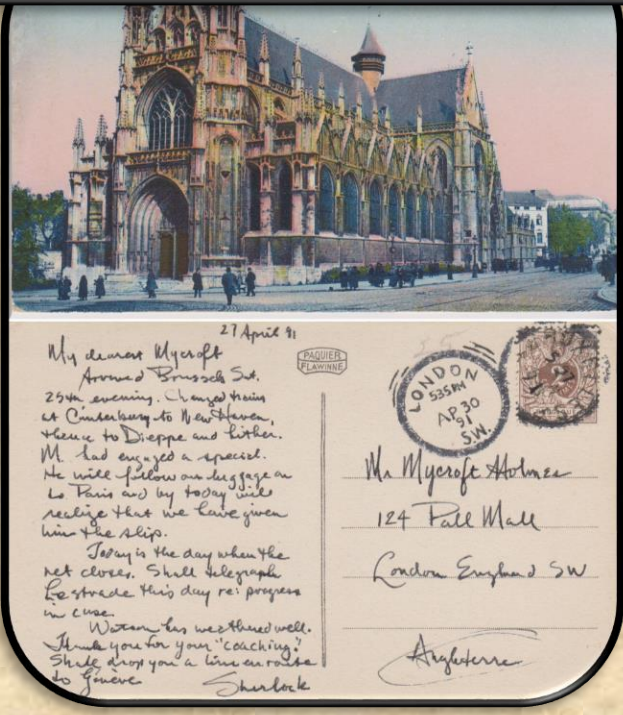 27 April 91
My dearest Mycroft
Arrived Brussels Sat.
25th evening. Changed trains
at Canterbury to New Haven,
thence to Dieppe and hither.
M. had engaged a special.
He will follow our luggage on
to Paris and by today will
realize that we have given
him the slip.
Today is the day when the
net closes. Shall telegraph
Lestrade this day re: progress
in case.
Watson has weathered well.
Thank you for your "coaching."
Shall drop you a line en route
to Genève
Sherlock
PAQUIER
FLAWINNE
LONDON
535PM
AP 30
91
S.W.
2
Mr Mycroft Holmes
124 Pall Mall
London England SW
Angleterre